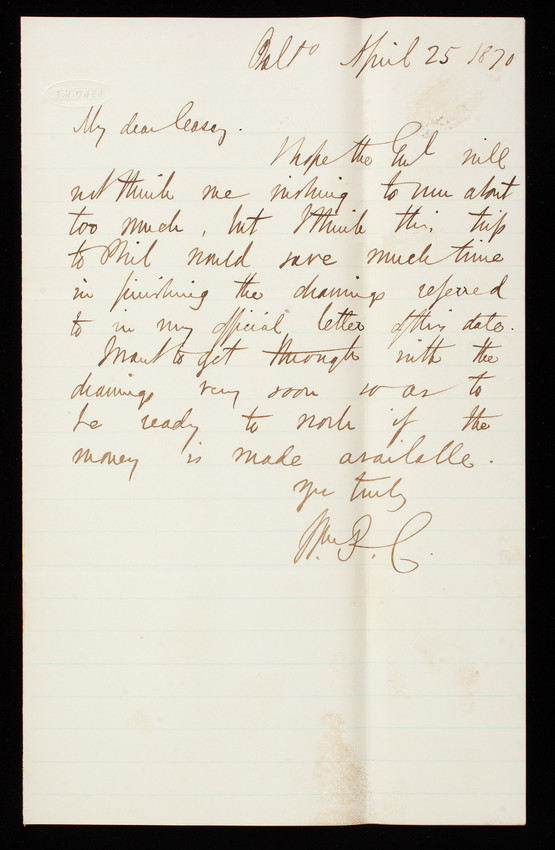 Balto April 25 1870
My dear Casey.
I hope the Genl will
not think me wishing to run about
too much, but I think this trip
to Phil would save much time
in finishing the drawings referred
to in my official letter of this date.
I want to get through with the
drawings very soon so as to
be ready to work if the
money is made available.
Yrs truly
Wm P. C.